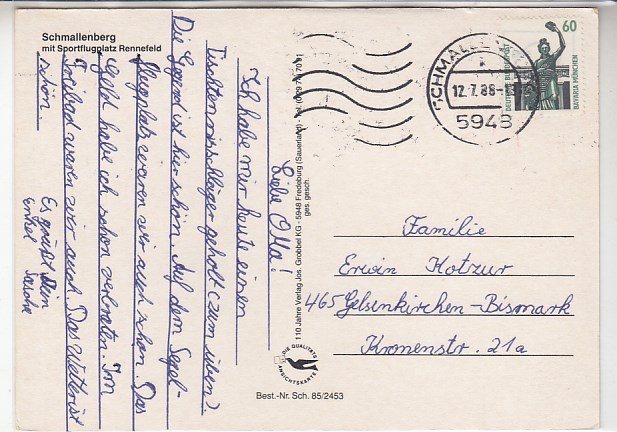 Schmallenberg
mit Sportflugplatz Rennefeld
Liebe Oma!
Ich habe mir heute einen
Tischtennisschläger geholt (zum üben).
Die Gegend ist hier schön. Auf dem Segel-
flugplatz waren wir auch schon. Das
Geld habe ich schon verbraten. Im
Tollbad waren wir auch. Das Wetter ist
schön.
Es grüßt Dein
Enkel Sascha
110 Jahre Verlag Jos. Grobbel KG - 5948 Fredeburg (Sauerland) - Tel.
ges. gesch.
DIE QUALITÄTS
ANSICHTSKARTE
Best.-Nr. Sch. 85/2453
SCHMALLEN
12.7.88-1
5948
60
DEUTSCHE BUNDESPOST
BAVARIA MÜNCHEN
Familie
Erwin Kotzur
465 Gelsenkirchen-Bismark
Kronenstr. 21a